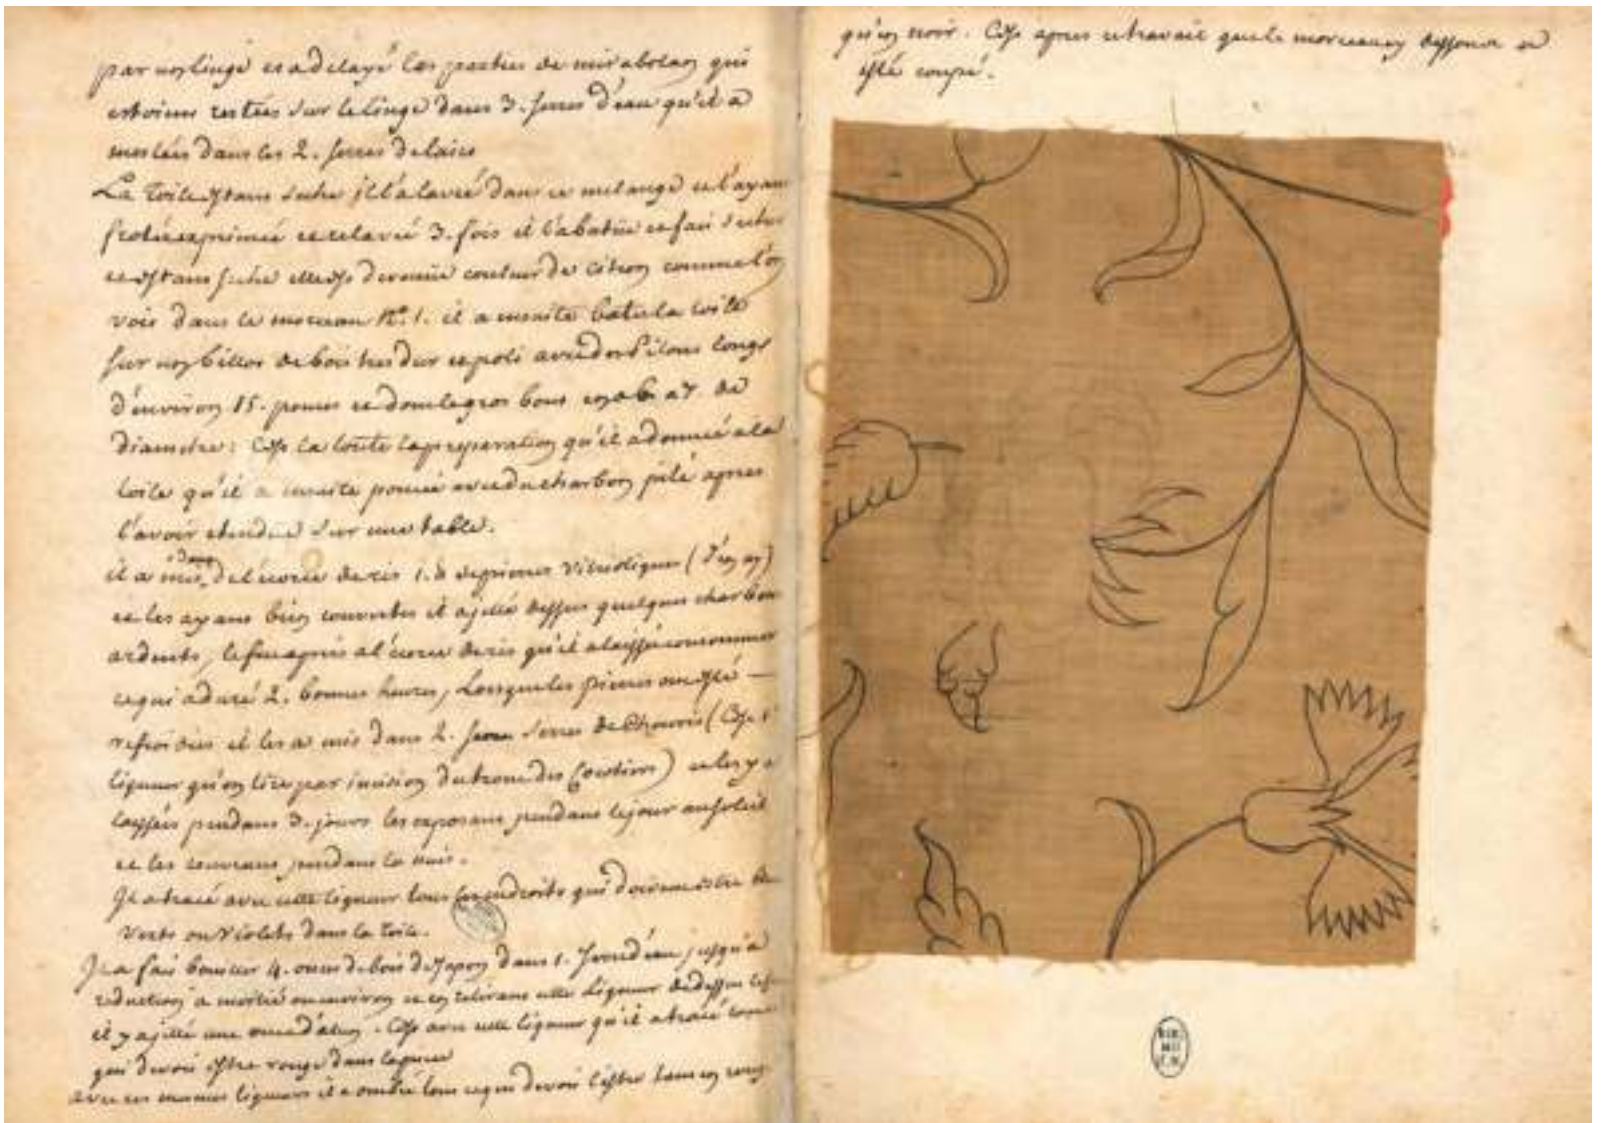 par un linge et a delayé les parties de mirabolan qui
estoient restées sur le linge dans 3. serres d'eau qu'il a
meslées dans les 2. serres de laict
La toile estant seche il l'a lavée dans ce melange et l'ayant
frotée exprimée et relavée 3. fois il l'a batüe et fait secher
et estant seche elle est devenüe couleur de citron comme l'on
voit dans le morceau N.o 1. il a ensuite batu la toile
sur un billot de bois tres dur et poli avec des pilons longs
d'environ 15. pouces et dont le gros bout en a 6 a 7 de
diametre: C'est la toute la preparation qu'il a donnée a la
toile qu'il a ensuite poncée avec du charbon pilé apres
l'avoir etendue sur une table.
il a mis dans de l'ecorce de ris 1. de pierres vitrioliques
et les ayant bien couvertes il a jetté dessus quelques charbons
ardents, le feu a pris a l'ecorce de ris qu'il a laissé consommer
ce qui a duré 2. bonnes heures, Lorsque les pierres ont esté
refroidies il les a mis dans 2. serres de Chouris (C'est
liqueur qu'on tire par incision du tronc des Cocotiers) et les y a
laissées pendant 3. jours les exposant pendant le jour au soleil
et les couvrant pendant la nuit.
Il a tracé avec cette liqueur tous les endroits qui doivent estre
verts ou violets dans la toile.
Il a fait bouillir 4. onces de bois de Japon dans 1. serre d'eau jusqu'a
reduction a moitié ou environ et en retirant cette liqueur de dessus le feu
il y a jetté une once d'alun. C'est avec cette liqueur qu'il a tracé tout
qui devoit estre rouge dans la piece
avec ces memes liqueurs il a ombré tout ce qui devoit l'estre tant en rouge
qu'en noir. C'est apres ce travail que le morceau dessous a
esté coupé.